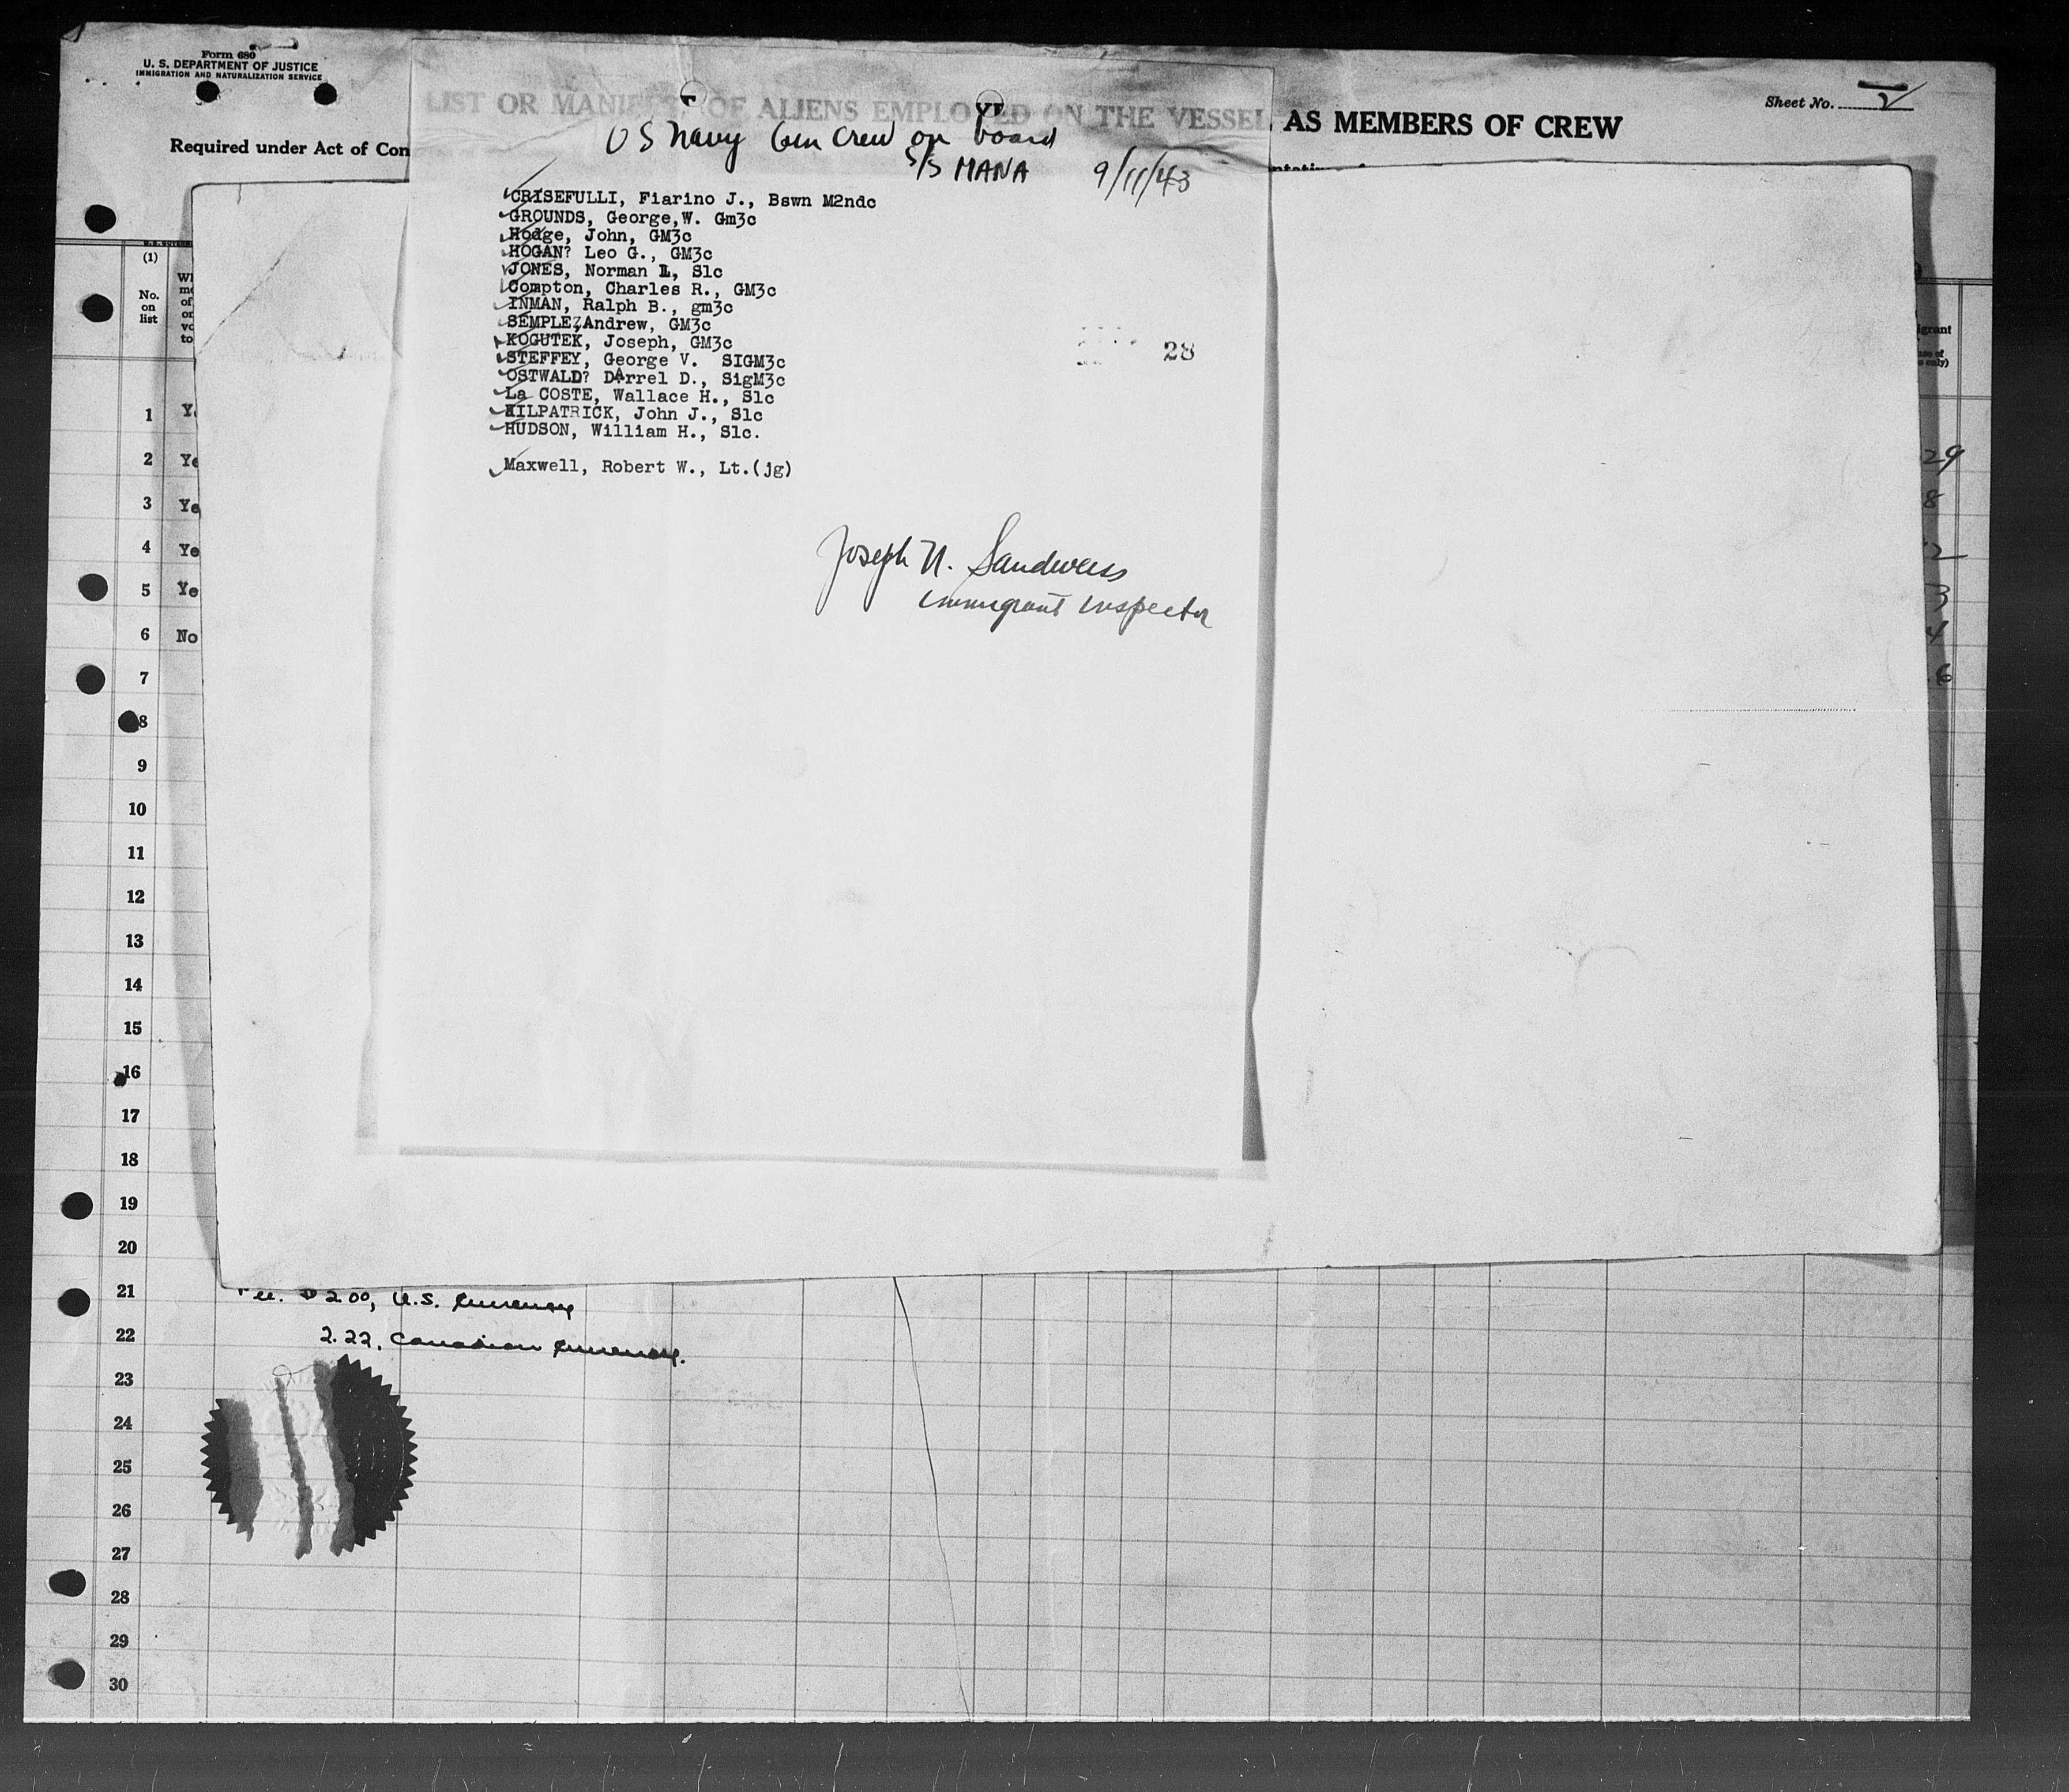 Form 680
U. S. DEPARTMENT OF JUSTICE
IMMIGRATION AND NATURALIZATION SERVICE
Sheet No. 2
LIST OR MANIFEST OF ALIENS EMPLOYED ON THE VESSEL AS MEMBERS OF CREW
Required under Act of Con
US Navy Gun Crew on board
S/S MANA 9/11/43
CRISEFULLI, Fiarino J., Bswn M2ndc
GROUNDS, George,W. Gm3c
Hodge, John, GM3c
HOGAN? Leo G., GM3c
JONES, Norman L, S1c
Compton, Charles R., GM3c
INMAN, Ralph B., gm3c
SEMPLE, Andrew, GM3c
KOGUTEK, Joseph, GM3c
STEFFEY, George V. SIGM3c
OSTWALD? DArrel D., SigM3c
La COSTE, Wallace H., S1c
KILPATRICK, John J., S1c
HUDSON, William H., S1c.
Maxwell, Robert W., Lt.(jg)
28
Joseph N. Sandweiss
Immigrant Inspector
(1)
No.
on
list
1
2 Ye
3 Ye
4 Ye
5 Ye
6 No
7
8
9
10
11
12
13
14
15
16
17
18
19
20
21
22
23
24
25
26
27
28
29
30
29
8
2
3
4
6
$2.00, U.S. Currency
2.22, Canadian Currency.